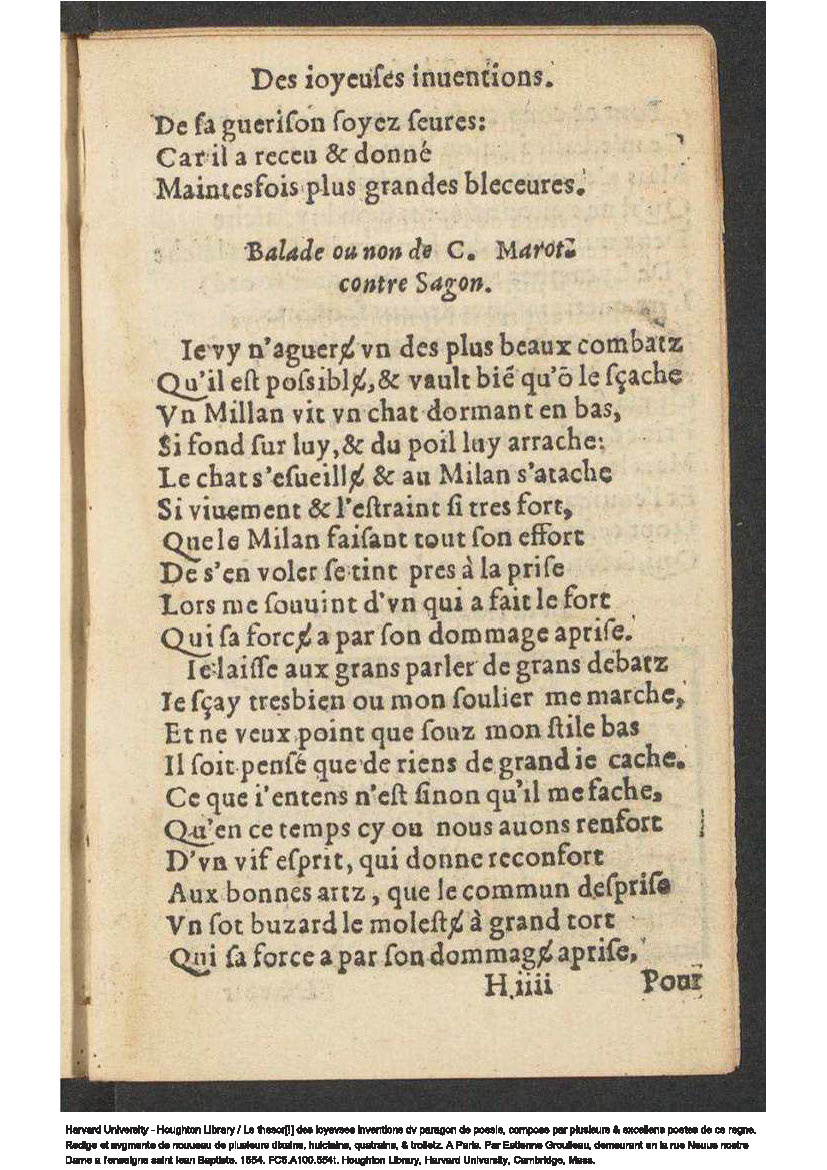 Des ioyeuſes inuentions.
De ſa gueriſon ſoyez ſeures:
Car il a receu & donné
Maintesfois plus grandes bleceures.
Balade ou non de C. Marotz
contre Sagon.
Ie vy n'aguerɇ vn des plus beaux combatz
Qu'il eſt poſsiblɇ, & vault bié qu'ō le ſçache
Vn Millan vit vn chat dormant en bas,
Si fond ſur luy, & du poil luy arrache:
Le chat s'eſueillɇ & au Milan s'atache
Si viuement & l'eſtraint ſi tres fort,
Que le Milan faiſant tout ſon effort
De s'en voler ſe tint pres à la priſe
Lors me ſouuint d'vn qui a fait le fort
Qui ſa forcɇ a par ſon dommage apriſe.
Ie laiſſe aux grans parler de grans debatz
Ie ſçay tresbien ou mon ſoulier me marche,
Et ne veux point que ſouz mon ſtile bas
Il ſoit penſé que de riens de grand ie cache.
Ce que i'entens n'eſt ſinon qu'il me fache,
Qu'en ce temps cy ou nous auons renfort
D'vn vif eſprit, qui donne reconfort
Aux bonnes artz, que le commun deſpriſe
Vn ſot buzard le moleſtɇ à grand tort
Qui ſa force a par ſon dommagɇ apriſe,
H.iiii Pour
Harvard University - Houghton Library / Le thesor[!] des ioyevses inventions dv paragon de poesie, compose par plusieurs & excellens poetes de ce regne.
Redige et avgmente de nouueau de plusieurs dixains, huictains, quatrains, & trolletz. A Paris. Par Estienne Groulleau, demeurant en la rue Neuue nostre
Dame a l'enseigne saint Iean Baptiste. 1554. FC5.A100.554t. Houghton Library, Harvard University, Cambridge, Mass.